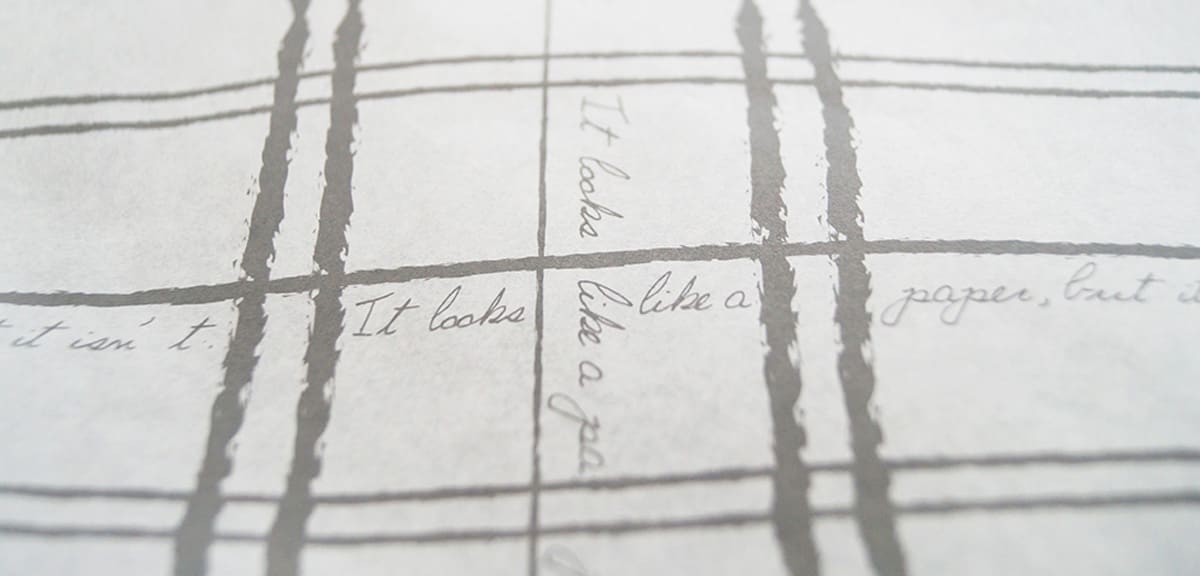 it isn't.
It looks like a paper, but
It looks like a pa